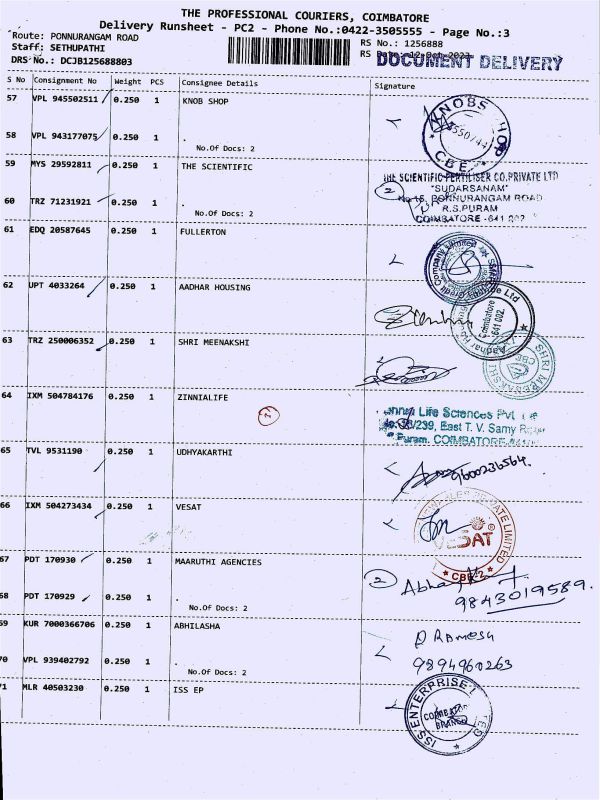 THE PROFESSIONAL COURIERS, COIMBATORE
Delivery Runsheet - PC2 - Phone No.:0422-3505555 - Page No.:3
Route: PONNURANGAM ROAD
Staff: SETHUPATHI
DRS No.: DCJB125688803
RS No.: 1256888
DOCUMENT DELIVERY
S No Consignment No Weight PCS Consignee Details Signature
57 VPL 945502511 0.250 1 KNOB SHOP
58 VPL 943177075 0.250 1 .
No.Of Docs: 2
KNOBS SHOP
CBE
59 MYS 29592811 0.250 1 THE SCIENTIFIC
60 TRZ 71231921 0.250 1 .
No.Of Docs: 2
THE SCIENTIFIC FERTILISER CO.PRIVATE LTD
2 "SUDARSANAM"
No 15, PONNURANGAM ROAD
R.S.PURAM
COIMBATORE -641 002
61 EDQ 20587645 0.250 1 FULLERTON
Credit Company Limited
62 UPT 4033264 0.250 1 AADHAR HOUSING
Coimbatore
641 002.
63 TRZ 250006352 0.250 1 SHRI MEENAKSHI
SHRI MEENAKSHI
CBE
64 IXM 504784176 0.250 1 ZINNIALIFE
Life Sciences Pvt
/239, East T. V. Samy
Puram, COIMBATORE
65 TVL 9531190 0.250 1 UDHYAKARTHI
9600236564.
66 IXM 504273434 0.250 1 VESAT
PRIVATE LIMITED
VESAT
CBE-2
67 PDT 170930 0.250 1 MAARUTHI AGENCIES
68 PDT 170929 0.250 1 .
No.Of Docs: 2
2
9843019589.
69 KUR 7000366706 0.250 1 ABHILASHA
70 VPL 939402792 0.250 1 .
No.Of Docs: 2
Ramesh
9894960263
71 MLR 40503230 0.250 1 ISS EP
ISS ENTERPRISE
COIMBATORE
BRANCH